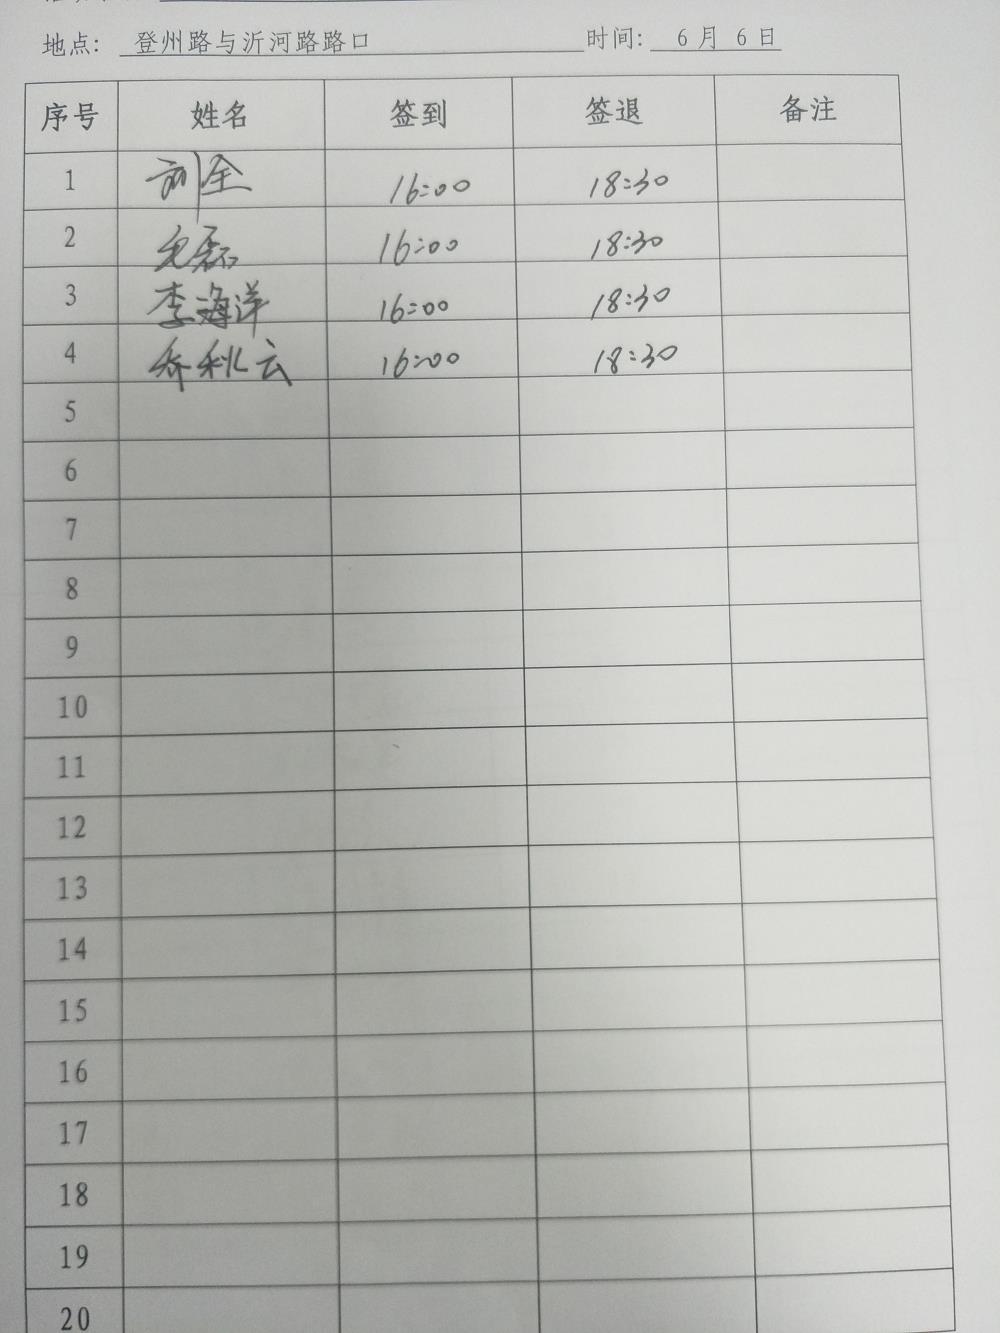 地点: 登州路与沂河路路口 时间: 6月 6日
序号 姓名 签到 签退 备注
1 刘全 16:00 18:30
2 磊 16:00 18:30
3 李海洋 16:00 18:30
4 乔秋云 16:00 18:30
5
6
7
8
9
10
11
12
13
14
15
16
17
18
19
20